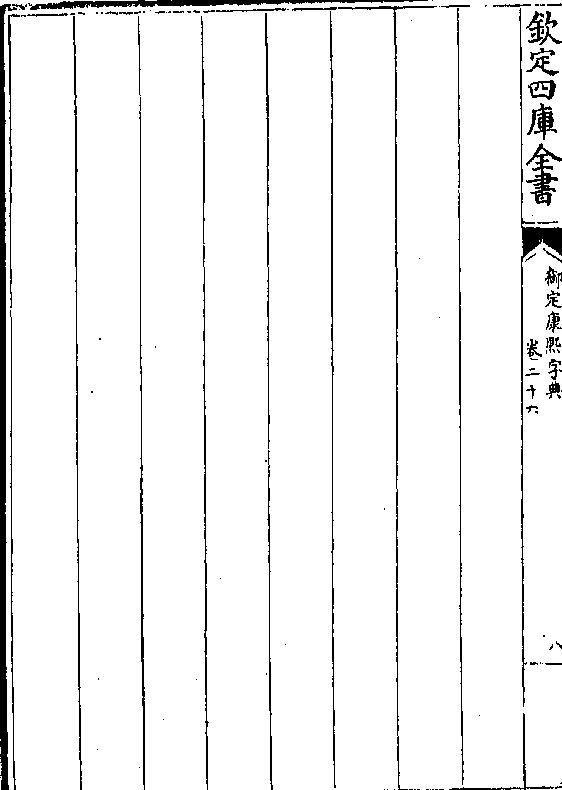 欽定四庫全書
御定康熙字典
卷二十六
八